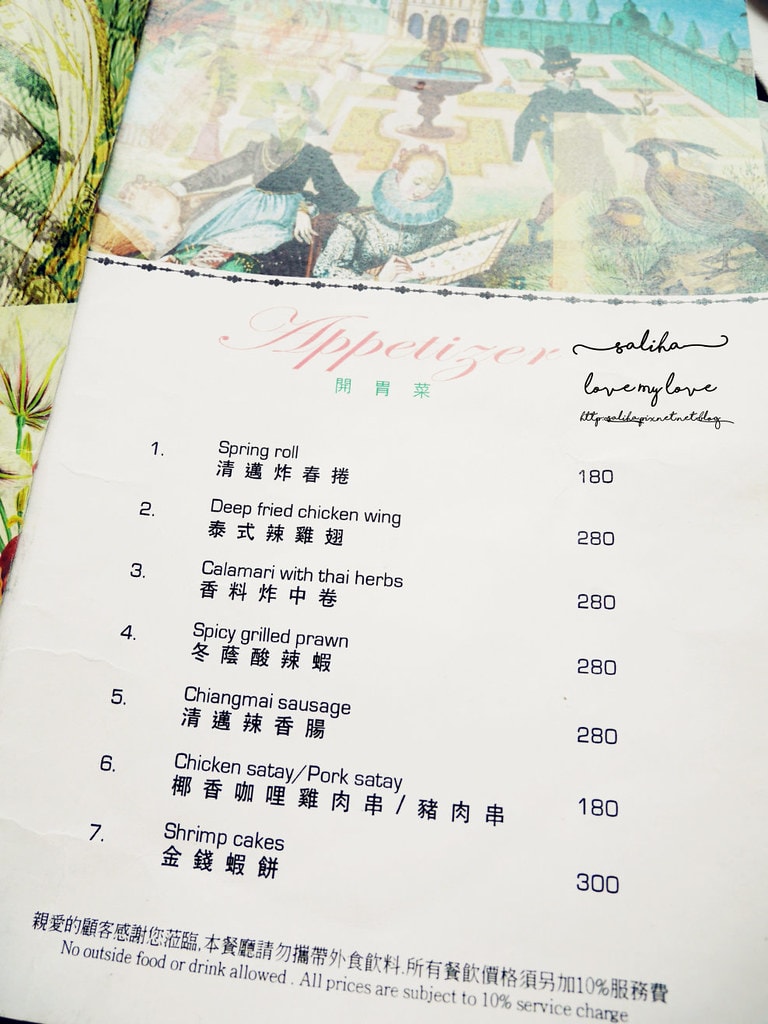 Appetizer
開胃菜
saliha
love my love
http:saliha.pixnet.net/blog
1. Spring roll
清邁炸春捲 180
2. Deep fried chicken wing
泰式辣雞翅 280
3. Calamari with thai herbs
香料炸中卷 280
4. Spicy grilled prawn
冬蔭酸辣蝦 280
5. Chiangmai sausage
清邁辣香腸 280
6. Chicken satay/Pork satay
椰香咖哩雞肉串/豬肉串 180
7. Shrimp cakes
金錢蝦餅 300
親愛的顧客感謝您蒞臨,本餐廳請勿攜帶外食飲料.所有餐飲價格須另加10%服務費
No outside food or drink allowed . All prices are subject to 10% service charge